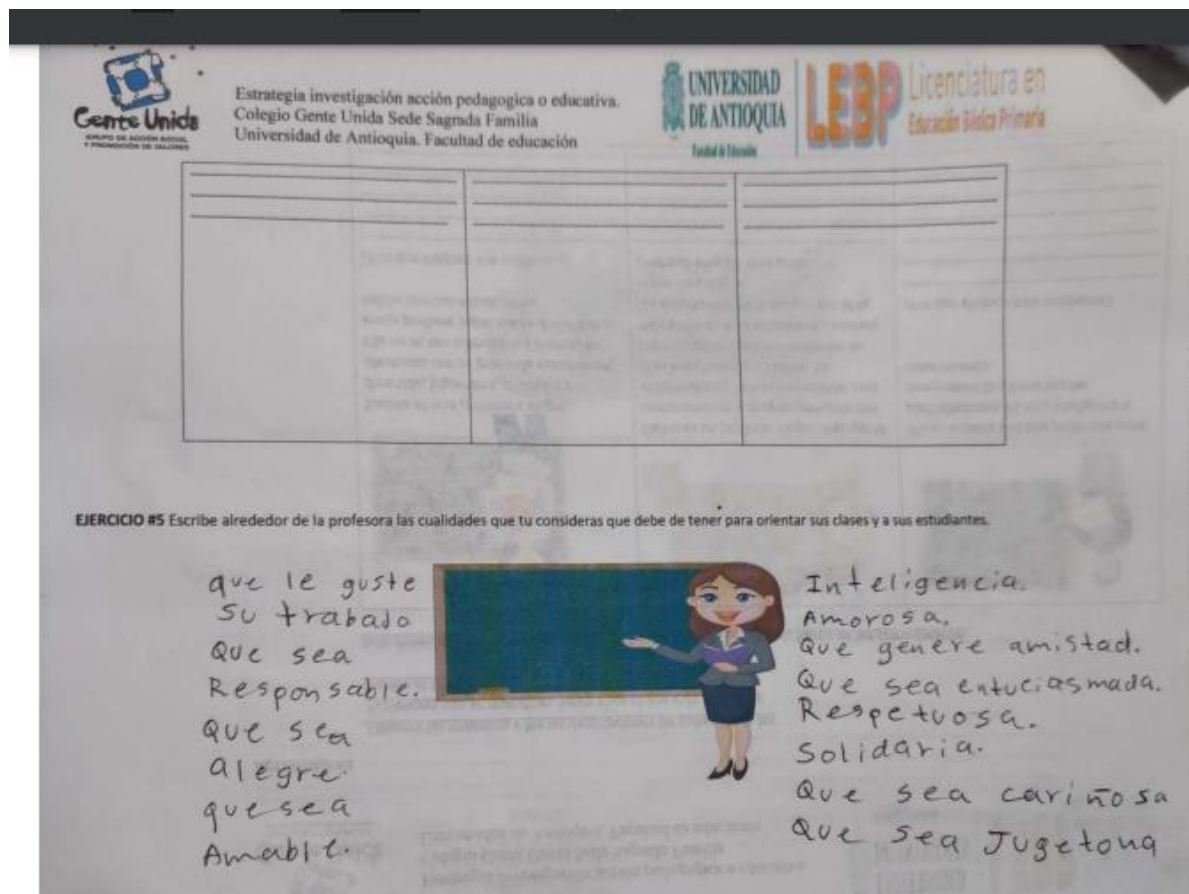 Gente Unida
GRUPO DE ACCIÓN SOCIAL
Y PROMOCIÓN DE VALORES
Estrategia investigación acción pedagogica o educativa.
Colegio Gente Unida Sede Sagrada Familia
Universidad de Antioquia. Facultad de educación
UNIVERSIDAD
DE ANTIOQUIA
Facultad de Educación
LEBP
Licenciatura en
Educación Básica Primaria
EJERCICIO #5 Escribe alrededor de la profesora las cualidades que tu consideras que debe de tener para orientar sus clases y a sus estudiantes.
que le guste
su trabajo
Que sea
Responsable.
Que sea
alegre.
que sea
Amable.
Inteligencia.
Amorosa.
Que genere amistad.
Que sea entuciasmada.
Respetuosa.
Solidaria.
Que sea cariñosa
Que sea Jugetona